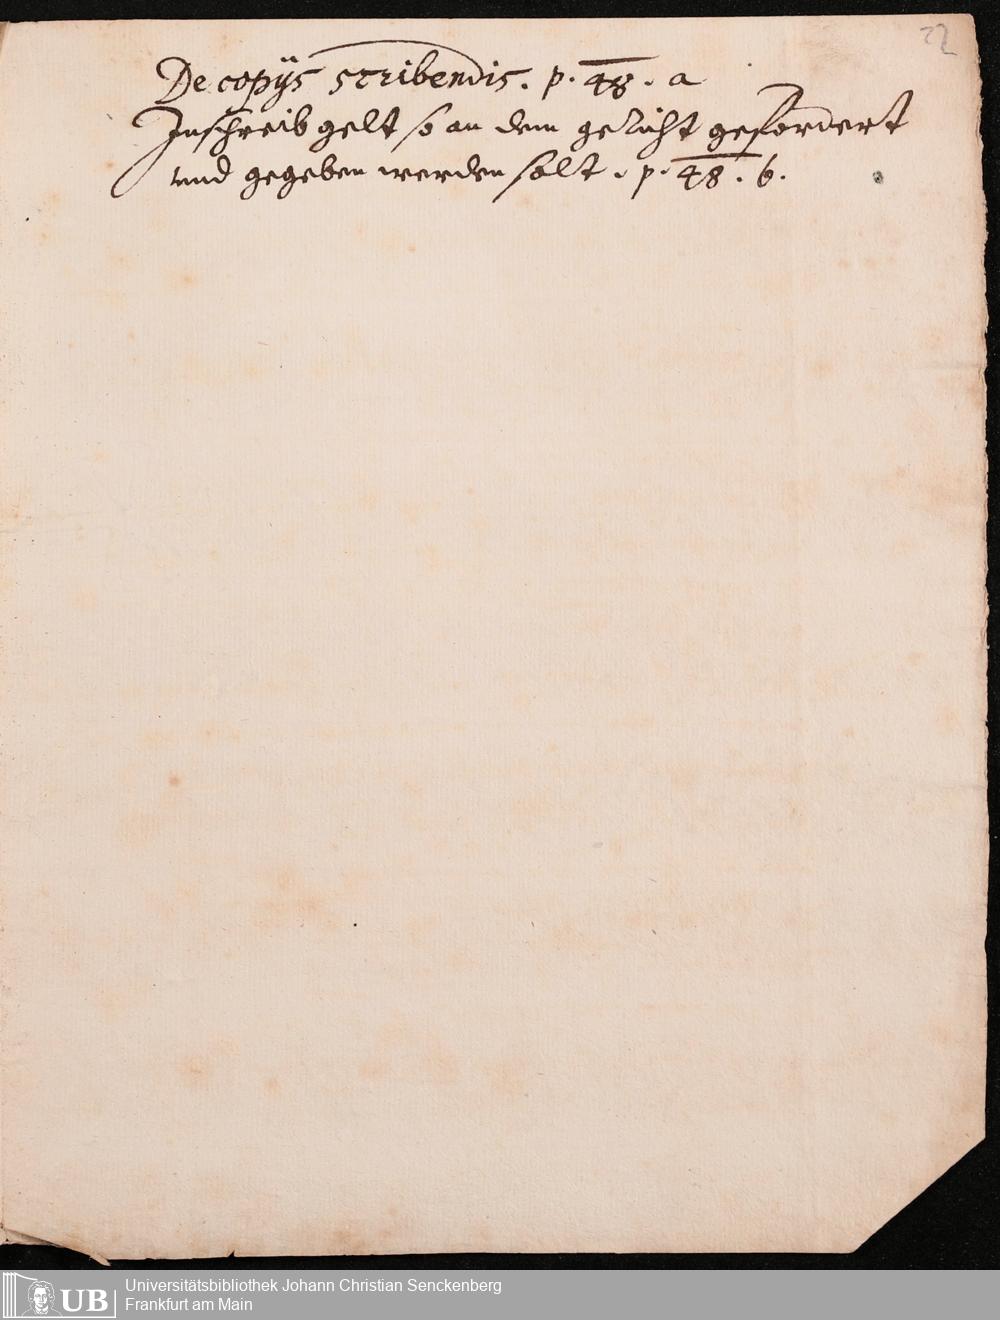 22
De copijs scribendis. p. 48. a
Inschreib gelt so an dem gericht gefordert
vnd gegeben werden solt. p. 48. b.
UB
Universitätsbibliothek Johann Christian Senckenberg
Frankfurt am Main